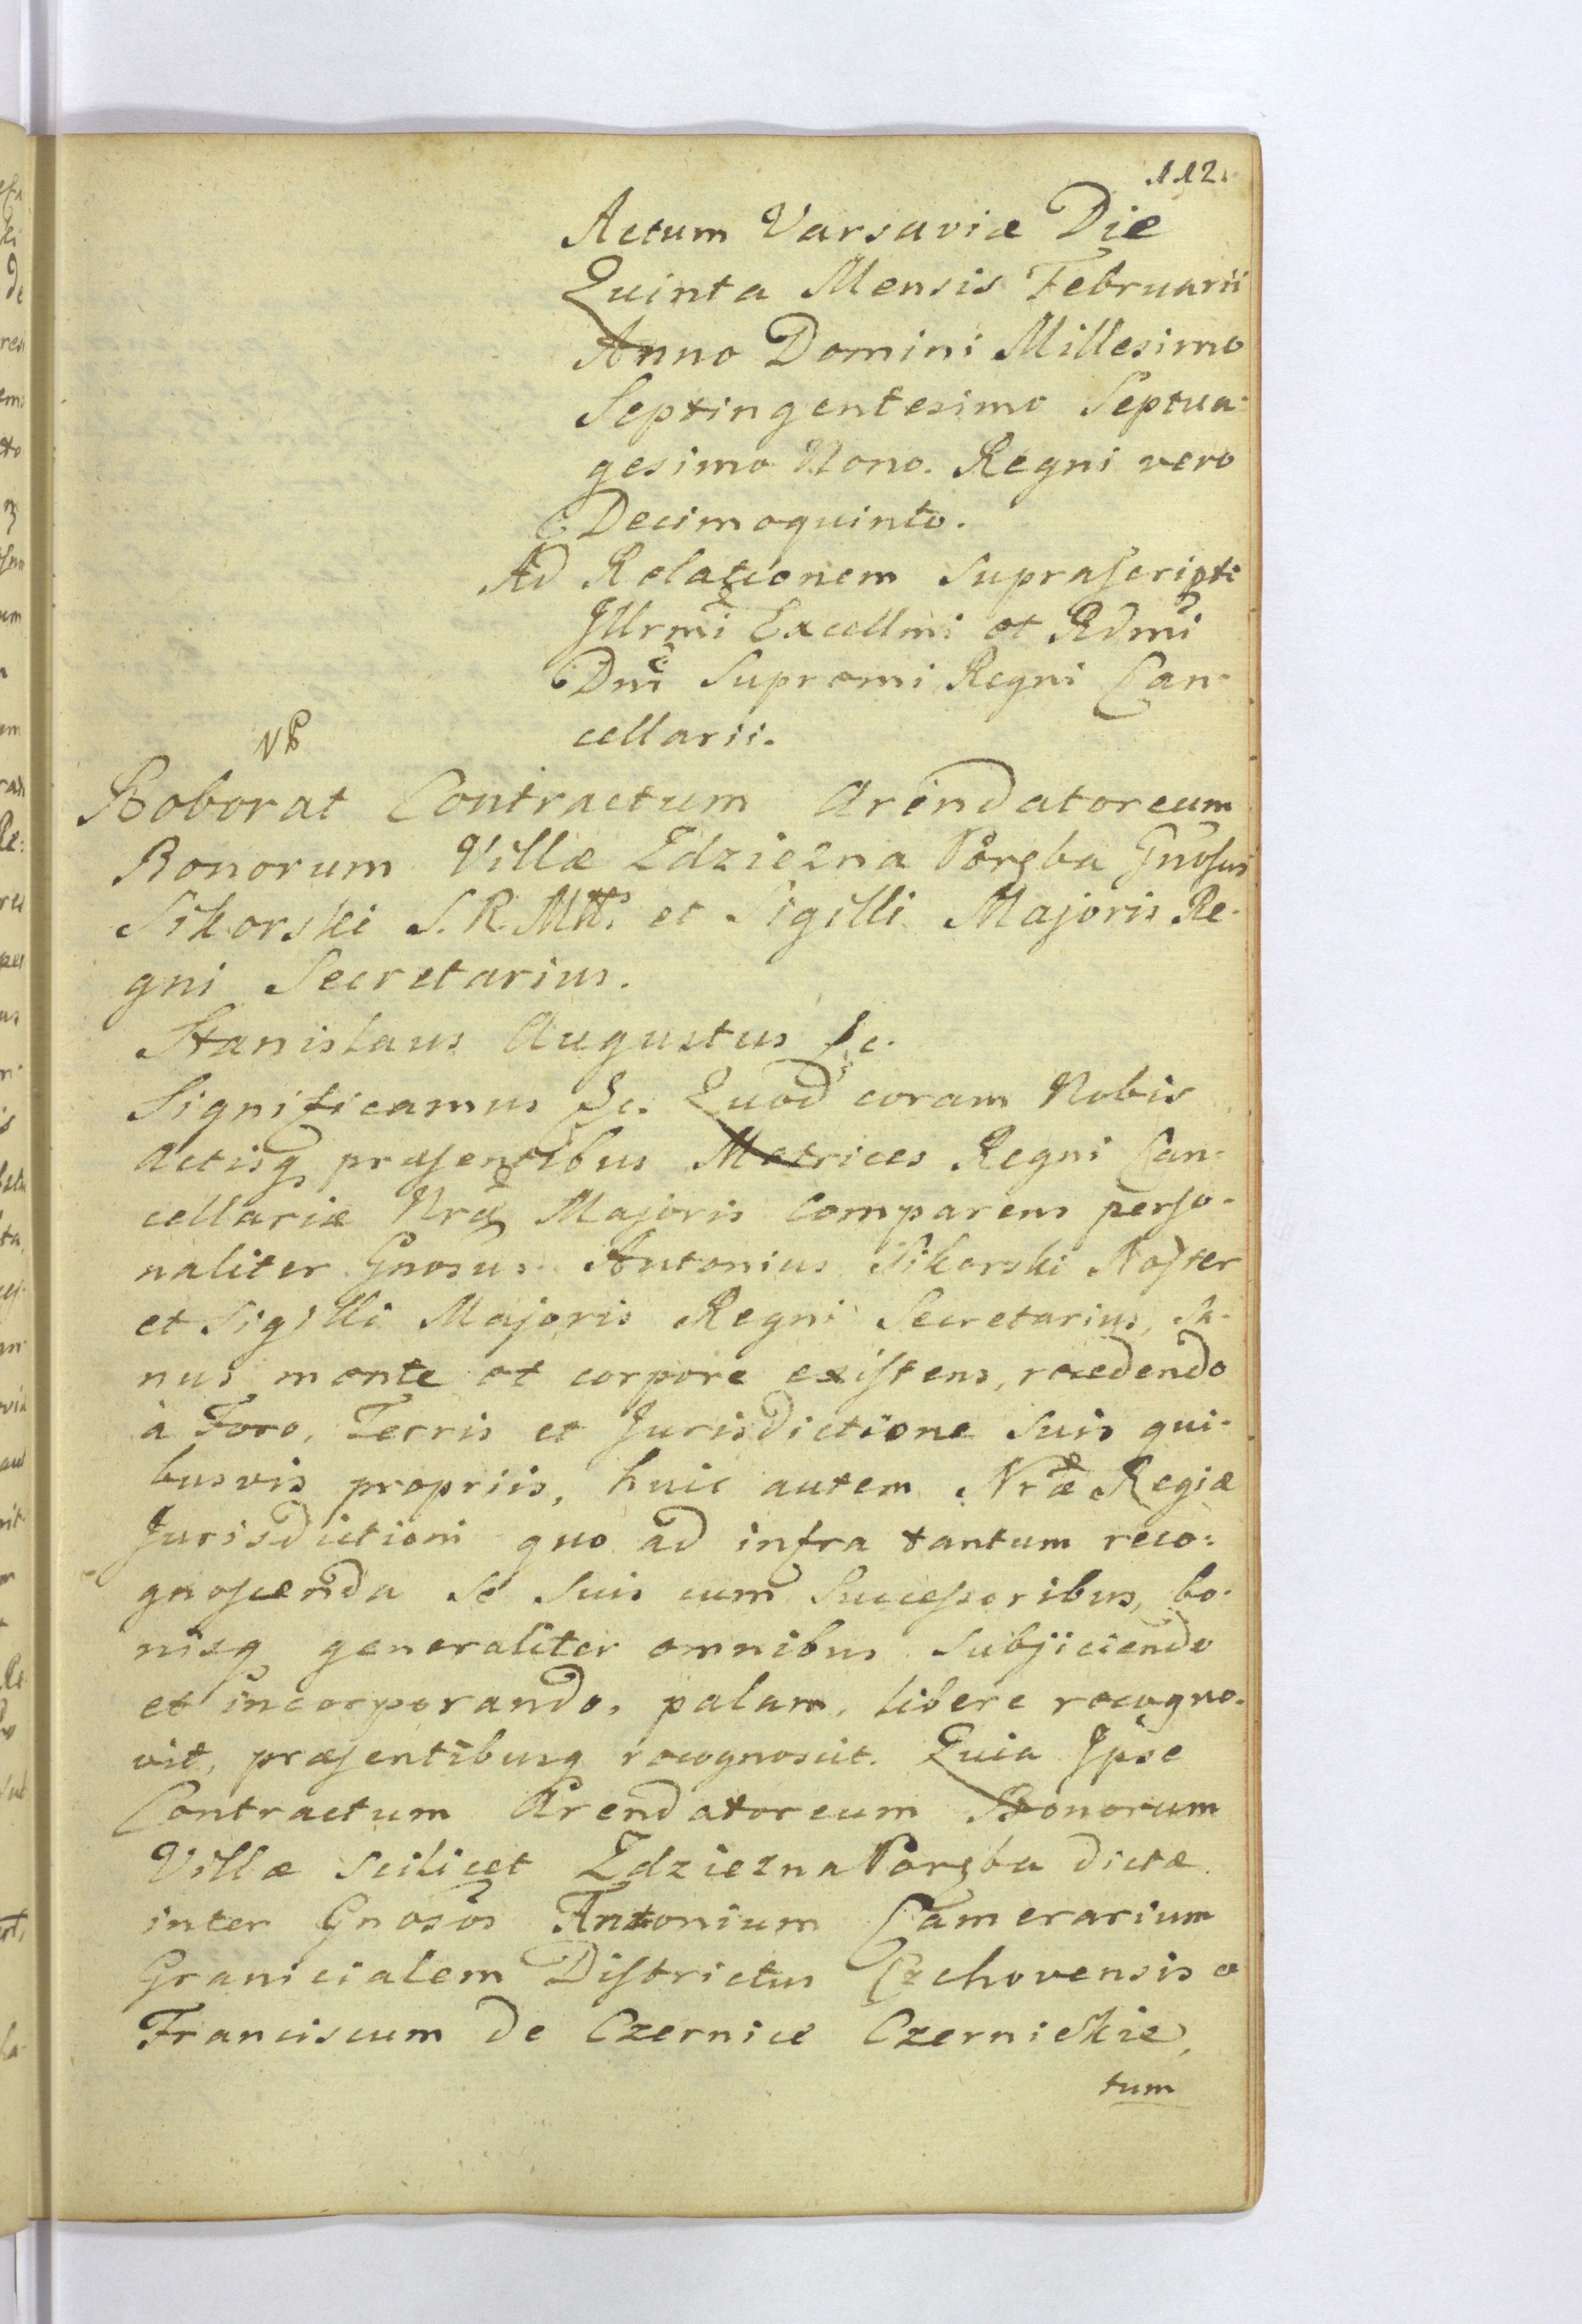 112.
Actum Varsaviæ Die
Quinta Mensis Februarii
Anno Domini Millesimo
Septingentesimo Septua-
gesimo Nono. Regni vero
Decimoquinto.
Ad Relationem suprascripti
Jllrmi Excellmi et Rdmi
Dni Supremi Regni Can-
cellarii.
NB
Roborat Contractum Arendatoreum
Bonorum Villæ Zdziezna Poręba Gnosus
Sikorski S. R. Mttis et Sigilli Majoris Re-
gni Secretarius.
Stanislaus Augustus &c.
Significamus &c. Quod coram Nobis
Actisq præsentibus Metrices Regni Can-
cellariæ Nræ Majoris Comparens perso-
naliter Gnosus Antonius Sikorski Noster
et Sigilli Majoris Regni Secretarius, Sa-
nus mente et corpore existens, recedendo
à Foro, Terris et Jurisdictione Suis qui-
busvis propriis, huic autem Nræ Regiæ
Jurisdictioni quo ad infra tantum reco:
gnoscenda se suis cum Successoribus, bo-
nisq generaliter omnibus subjiciendo
et incorporando, palam, libere recogno-
vit, præsentibusq recognoscit. Quia Jpse
Contractum Arendatoreum Bonorum
Villæ scilicet Zdziezna Poręba dictæ
inter Gnosos Antonium Camerarium
Granicialem Districtus Czchovensis et
Franciscum de Czernice Czernickie,
tum